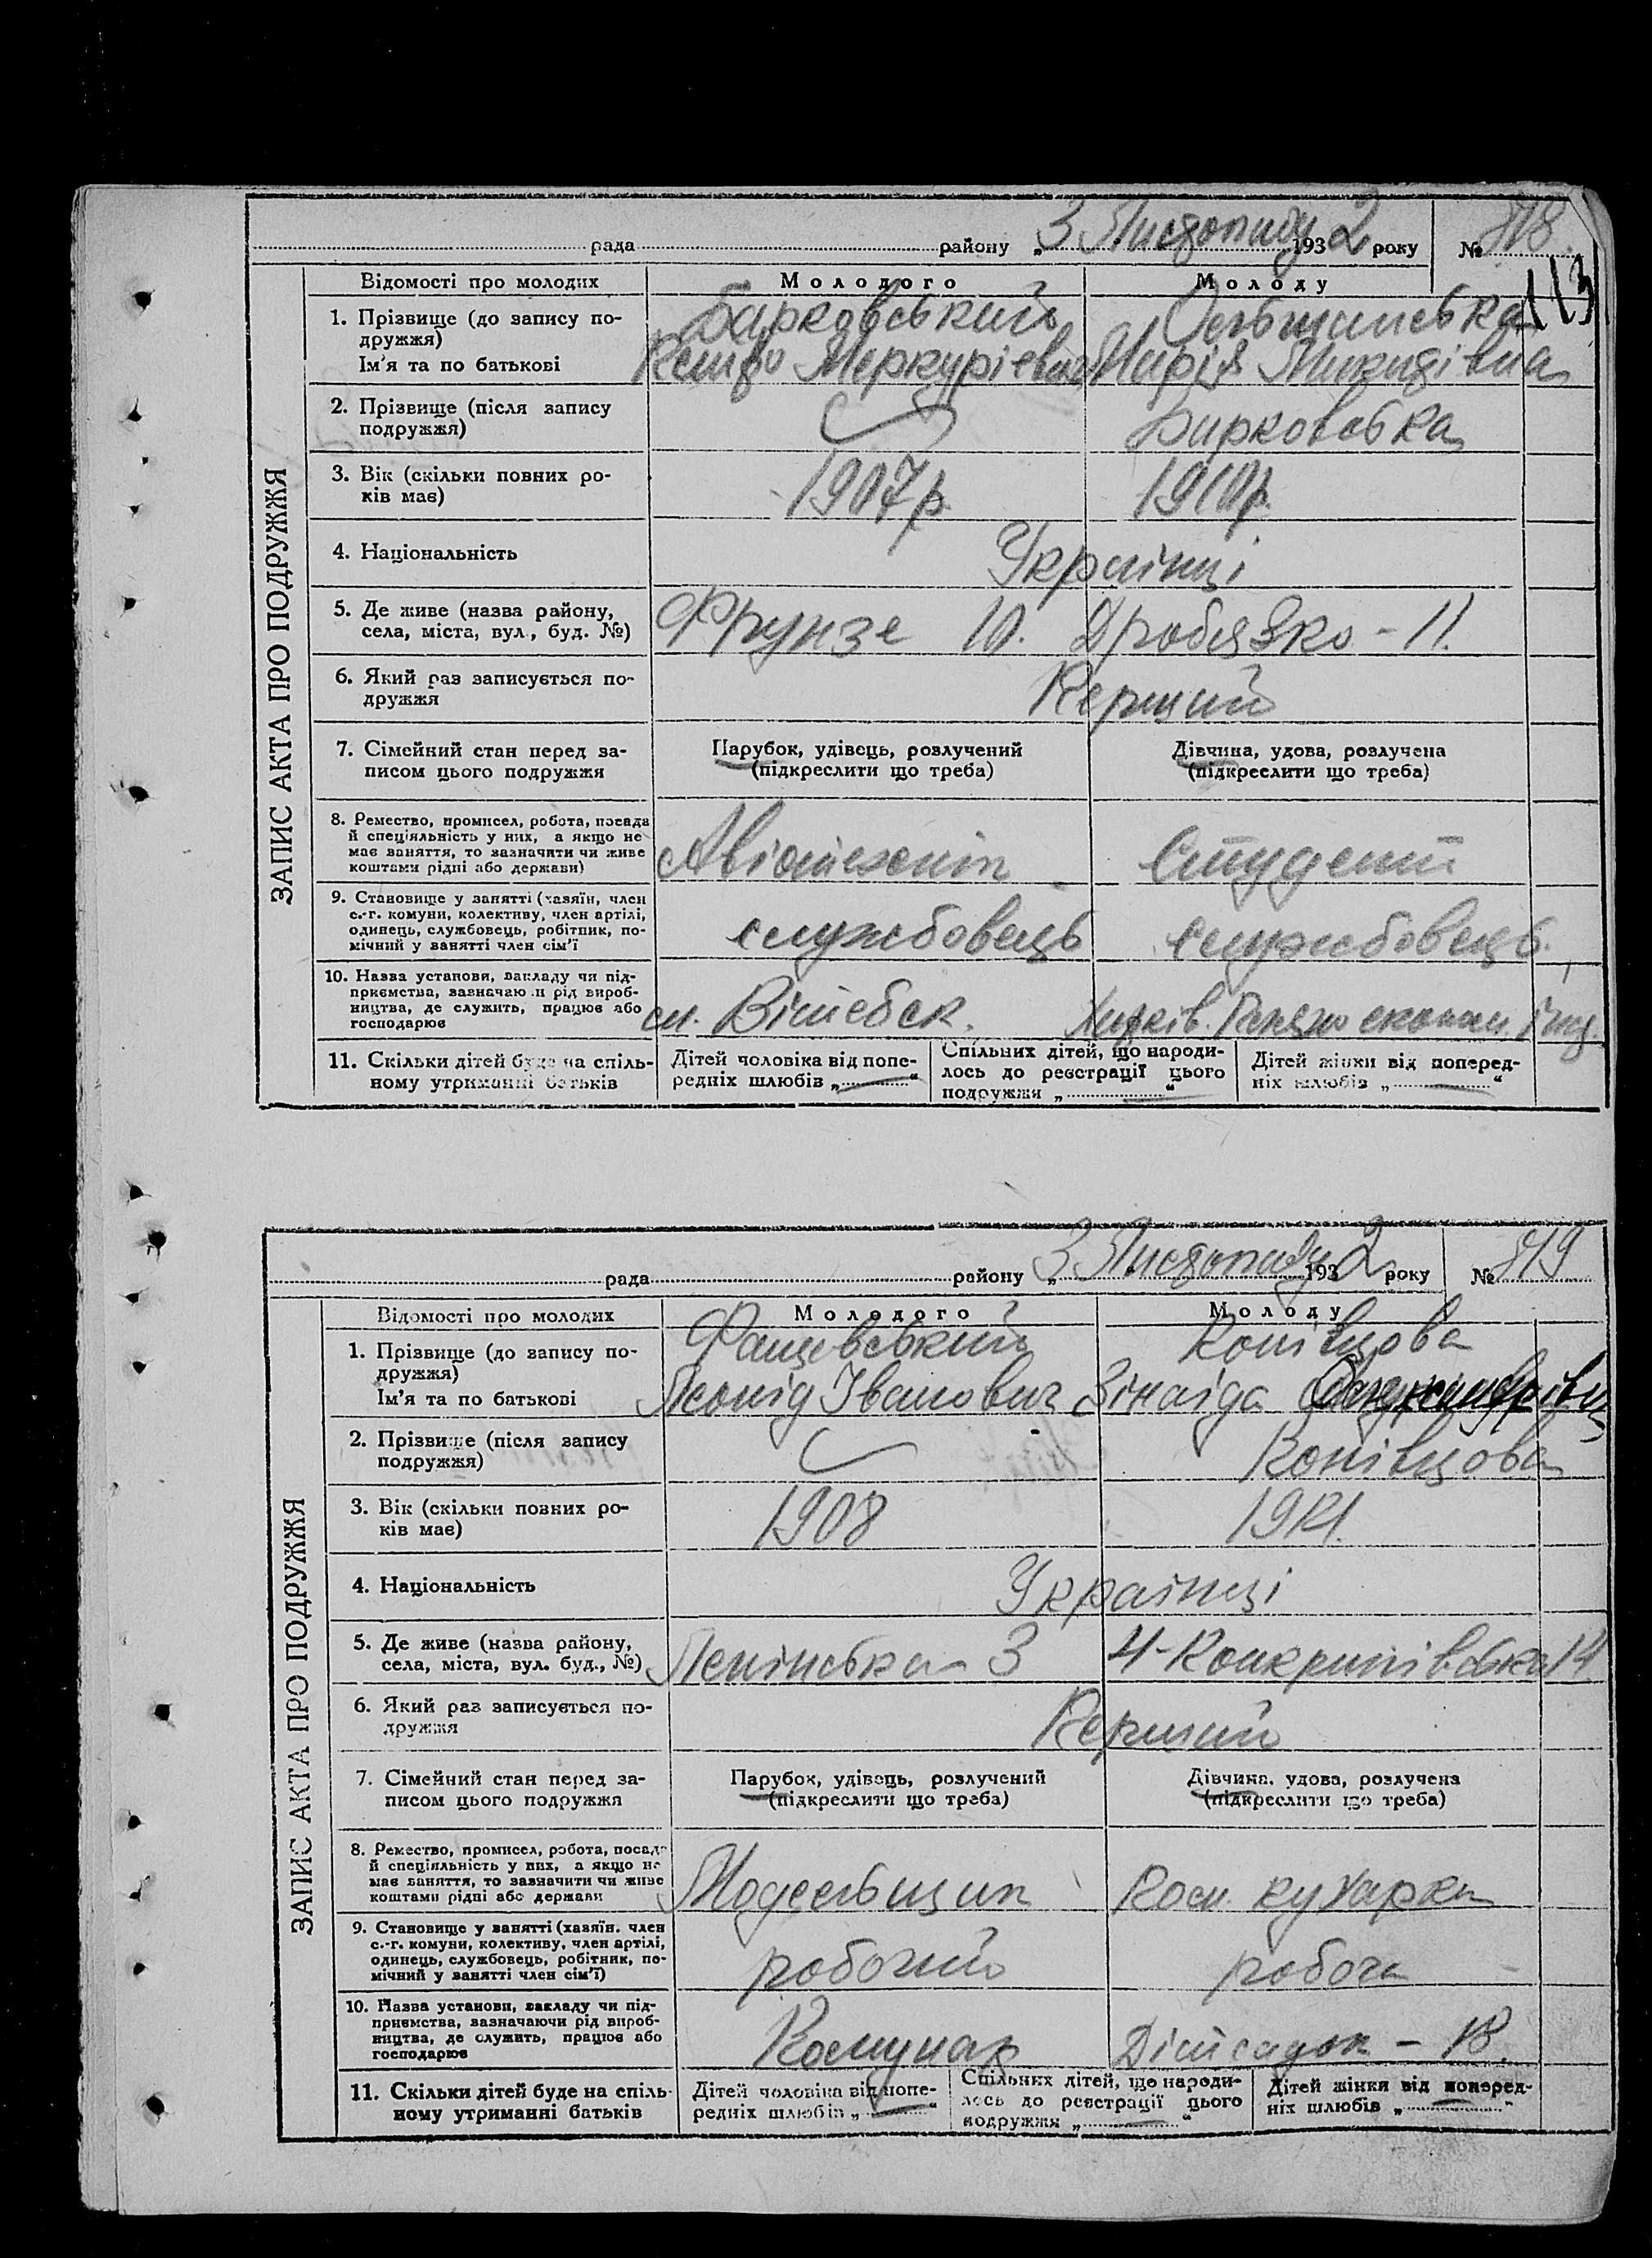 рада району „3 Листопаду 1932 року № 818.
113
ЗАПИС АКТА ПРО ПОДРУЖЖЯ
Відомості про молодих Молодого Молоду
1. Прізвище (до запису по-
дружжя)
Барковський
Ім'я та по батькові
Меркурієвич Марія Микитівна
2. Прізвище (після запису
подружжя)
Барковська
3. Вік (скільки повних ро-
ків має)
1907р. 1910р.
4. Національність
Українці
5. Де живе (назва району,
села, міста, вул., буд. №)
Фрунзе 10. Дробязко - 11.
6. Який раз записується по-
дружжя
Перший
7. Сімейний стан перед за-
писом цього подружжя
Парубок, удівець, розлучений
(підкреслити що треба)
Дівчина, удова, розлучена
(підкреслити що треба)
8. Ремество, промисел, робота, посада
й спеціяльність у них, а якщо не
має заняття, то зазначити чи живе
коштами рідні або держави)
Авіотехнік Студент
9. Становище у занятті (хазяїн, член
с.-г. комуни, колективу, член артілі,
одинець, службовець, робітник, по-
мічний у занятті член сім'ї
службовець службовець.
10. Назва установи, закладу чи під-
приємства, зазначаючи рід вироб-
ництва, де служить, працює або
господарює
м. Вітебск. Харків. економ. інд.
11. Скільки дітей буде на спіль-
ному утриманні батьків
Дітей чоловіка від попе-
редніх шлюбів „ “
Спільних дітей, що народи-
лось до реєстрації цього
подружжя „ “
Дітей жінки від поперед-
ніх шлюбів „ “
рада району „3 Листопаду 1932 року № 819
ЗАПИС АКТА ПРО ПОДРУЖЖЯ
Відомості про молодих Молодого Молоду
1. Прізвище (до запису по-
дружжя)
Фащевський Копівцова
Ім'я та по батькові
Леонід Іванович Зінаіда
2. Прізвище (після запису
подружжя)
Копівцова
3. Вік (скільки повних ро-
ків має)
1908
4. Національність
Українці
5. Де живе (назва району,
села, міста, вул. буд., №)
Ленінська 3 14
6. Який раз записується по-
дружжя
Перший
7. Сімейний стан перед за-
писом цього подружжя
Парубок, удівець, розлучений
(підкреслити що треба)
Дівчина, удова, розлучена
(підкреслити що треба)
8. Ремество, промисел, робота, посада
й спеціяльність у них, а якщо не
має заняття, то зазначити чи живе
коштами рідні або держави
Модельщик Пом. кухарки
9. Становище у занятті (хазяїн, член
с.-г. комуни, колективу, член артілі,
одинець, службовець, робітник, по-
мічний у занятті член сім'ї)
робочий робоча
10. Назва установи, закладу чи під-
приємства, зазначаючи рід вироб-
ництва, де служить, працює або
господарює
Комунар Дітсадок - 18.
11. Скільки дітей буде на спіль-
ному утриманні батьків
Дітей чоловіка від попе-
редніх шлюбів „ “
Спільних дітей, що народи-
лось до реєстрації цього
подружжя „ “
Дітей жінки від поперед-
ніх шлюбів „ “